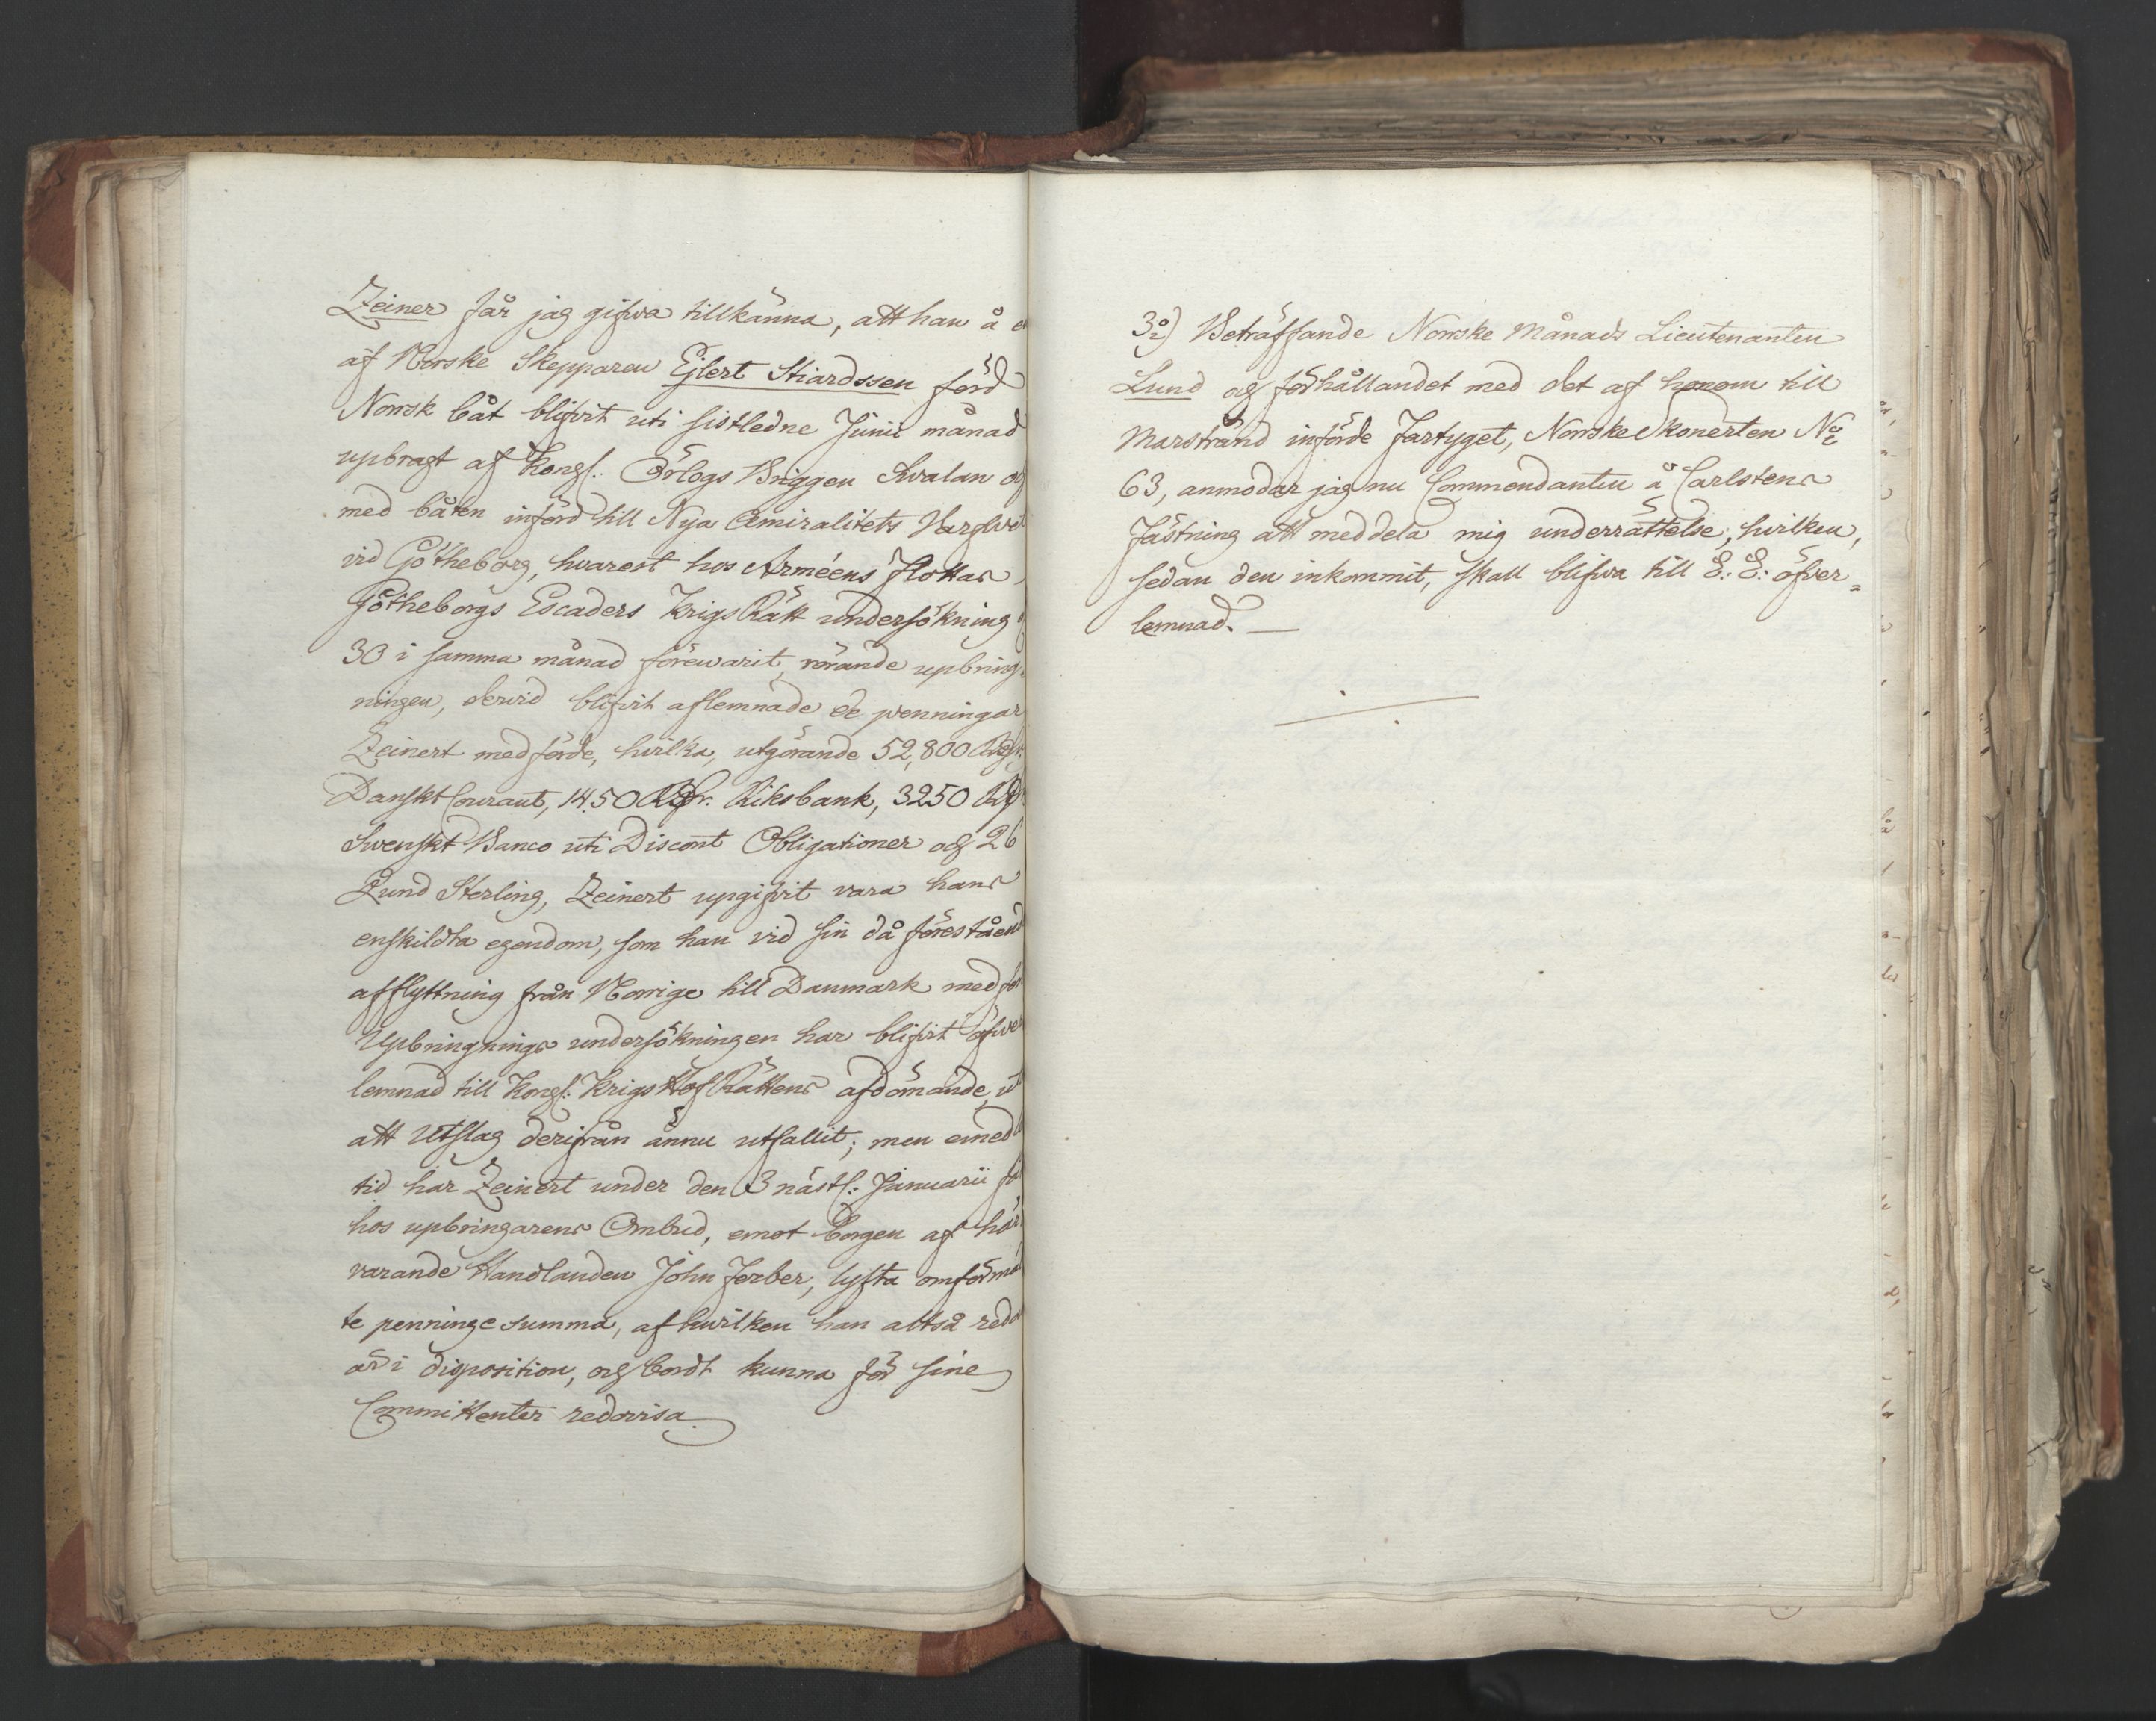 Zeiner får jag gifwa tillkänna, att han å
af Norske Skepparen Ejlert Stiardssen förd
Norsk båt blifvit uti sistledne Junii månad
upbragt af Kongl: Örlogs Briggen Svalan og
med båten införd till Nya Amiralitets Varfvet
vid Götheborg, hvarest hos Arméens Flottas
Götheborgs Escaders Krigs Rätt undersökning
30 i samma månad förewarit, rörande upbring-
ningen, dervid blifvit aflemnade de penningar
Zeinert medförde, hvilka, utgörande 52,800 Rdr:
Danskt Courant, 1450 Rdr: Riksbank, 3250 Rdr
Swenskt Banco uti Discont Obligationer og 26
Pund Sterling, Zeinert upgifvit vara hans
enskildta egendom, som han vid sin då förestående
afflyttning från Norrige till Danmark medför
Upbringnings undersökningen har blifvit öfver
lemnad till Kongl: Krigs Hof Rättens afdömande, ut
att Utslag derifrån ännu utfallit; men emedl
tid har Zeinert under den 3 nästl: Januarii få
hos upbringarens Ombud, emot Borgen af här
varande Handlanden John Jerber, lyfta omförmäl
te penninge summa, af hwilken han altså reda
är i disposition, og bordt kunna för sine
Committenter redovisa.
3o) Beträffande Norske Månads Lieutenanten
Lund og förhållandet med det af honom till
Marstrand införde Fartyget, Norske Skonerten No
63, anmodar jag nu Commendanten å Carlstens
Fästning att meddela mig underrättelse, hvilken,
sedan den inkommit, skall blifwa till E: E: öfver=
lemnad. —